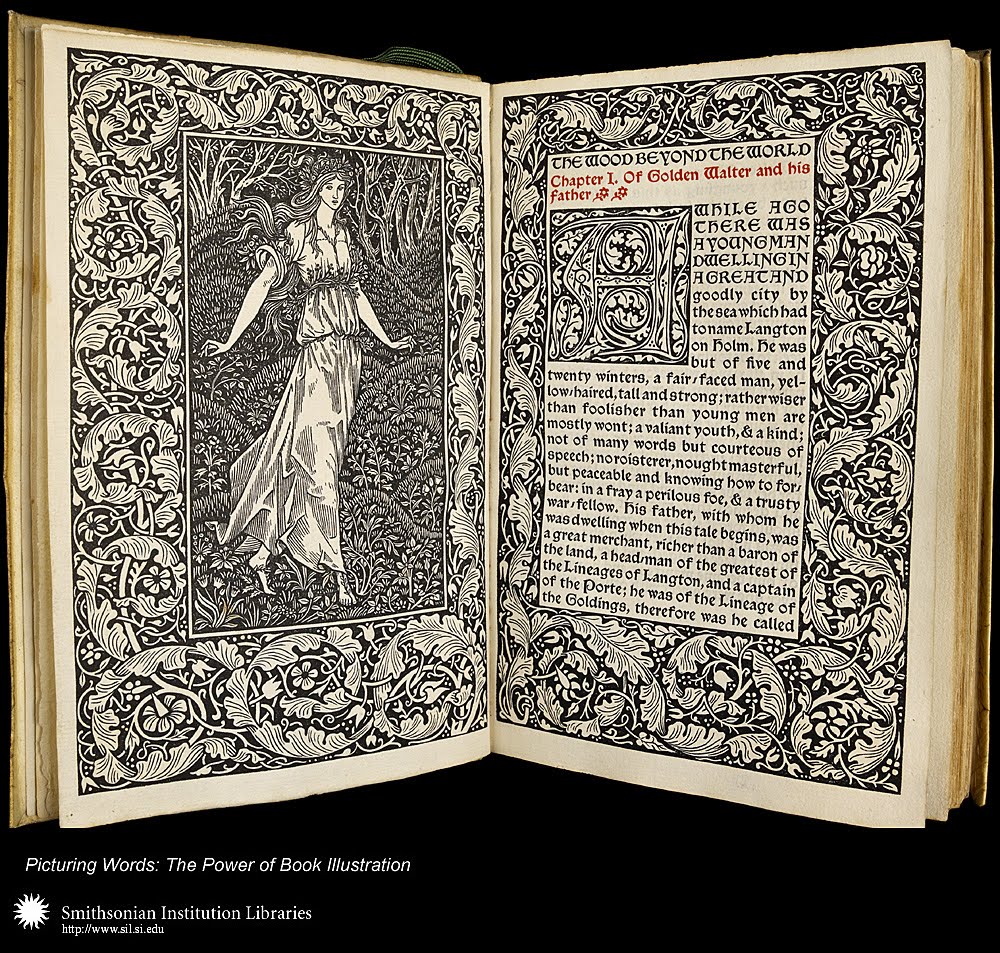 THE WOOD BEYOND THE WORLD
Chapter I. Of Golden Walter and his
father
A
WHILE AGO
THERE WAS
A YOUNG MAN
DWELLING IN
A GREAT AND
goodly city by
the sea which had
to name Langton
on Holm. He was
but of five and
twenty winters, a fair-faced man, yel-
low-haired, tall and strong; rather wiser
than foolisher than young men are
mostly wont; a valiant youth, & a kind;
not of many words but courteous of
speech; no roisterer, nought masterful,
but peaceable and knowing how to for-
bear: in a fray a perilous foe, & a trusty
war-fellow. His father, with whom he
was dwelling when this tale begins, was
a great merchant, richer than a baron of
the land, a head-man of the greatest of
the Lineages of Langton, and a captain
of the Porte; he was of the Lineage of
the Goldings, therefore was he called
Picturing Words: The Power of Book Illustration
Smithsonian Institution Libraries
http://www.sil.si.edu